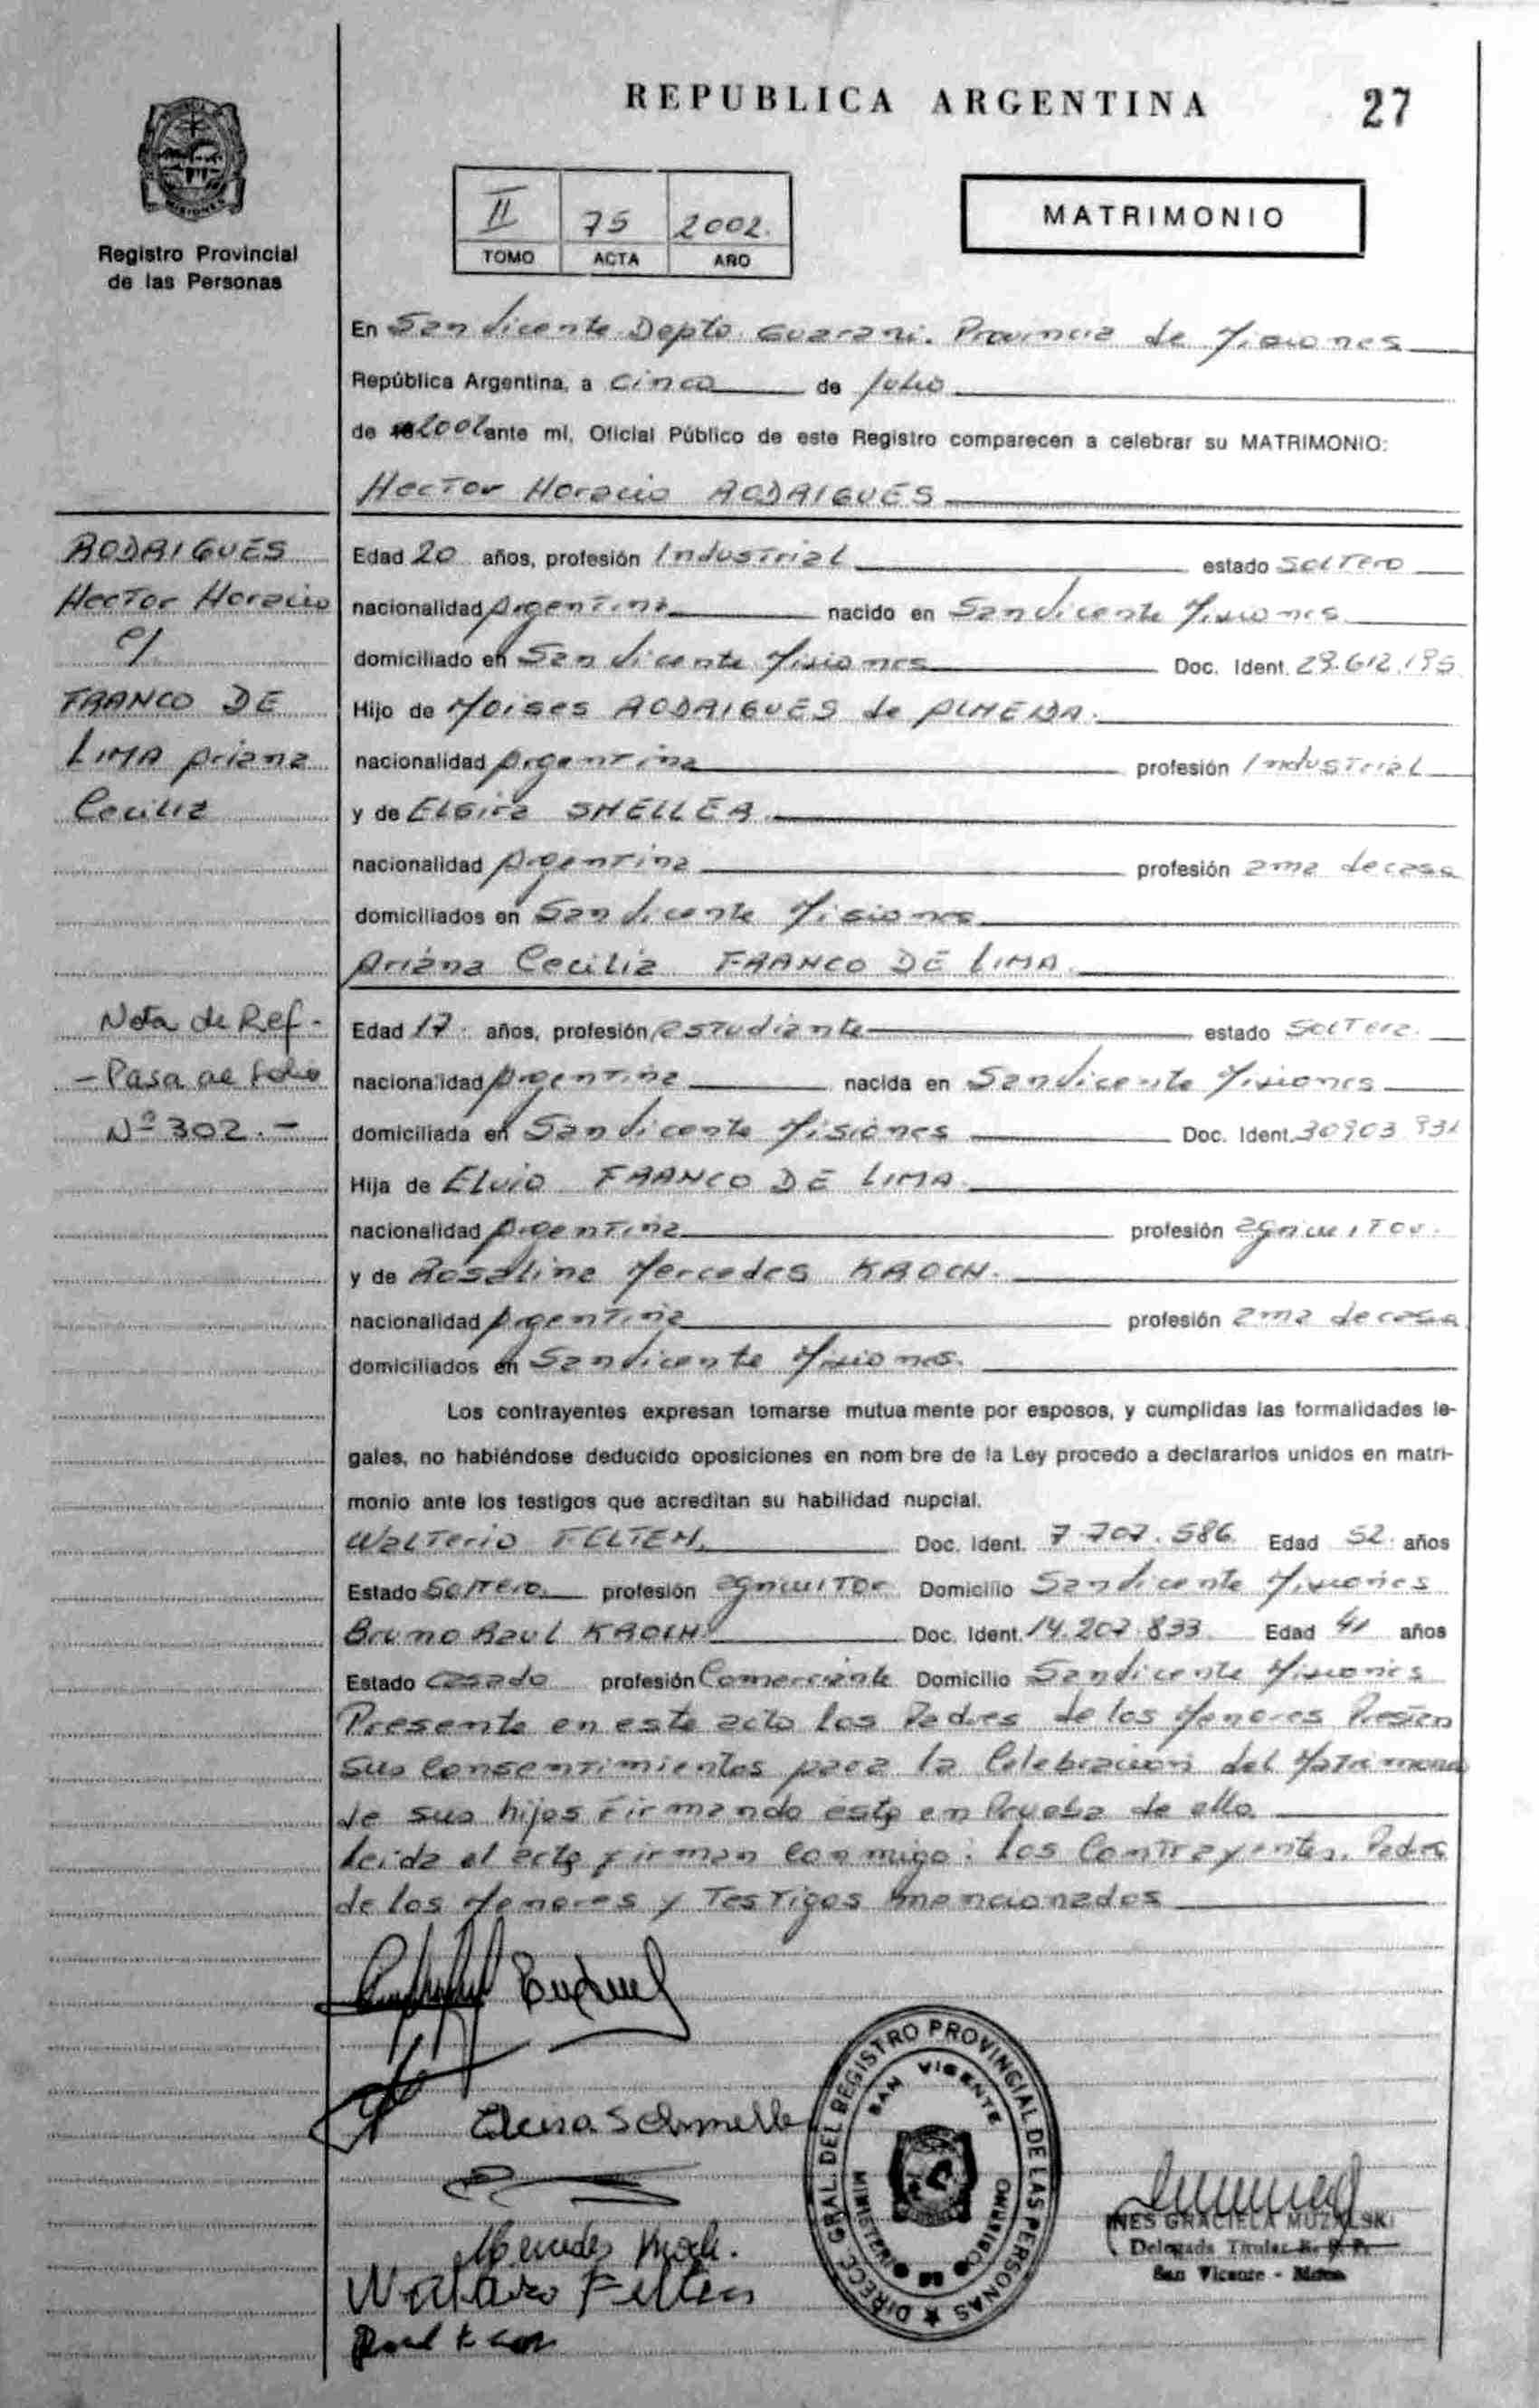 REPUBLICA ARGENTINA
27
MISIONES
Registro Provincial
de las Personas
II 75 2002.
TOMO ACTA AÑO
MATRIMONIO
En San Vicente Depto Guarani. Provincia de Misiones
República Argentina, a Cinco de Julio
de 2002 ante mi, Oficial Público de este Registro comparecen a celebrar su MATRIMONIO:
Hector Horacio RODRIGUES
RODRIGUES
Hector Horacio
c/
FRANCO DE
LIMA Ariana
Cecilia
Nota de Ref.-
- Pasa al folio
Nº 302.-
Edad 20 años, profesión Industrial estado Soltero
nacionalidad Argentina nacido en San Vicente Misiones
domiciliado en San Vicente Misiones Doc. Ident. 29.612.195
Hijo de Moises RODRIGUES de ALMEIDA.
nacionalidad Argentina profesión Industrial
y de Elsira SMELLER.
nacionalidad Argentina profesión ama de casa
domiciliados en San Vicente Misiones
Ariana Cecilia FRANCO DE LIMA.
Edad 17. años, profesión estudiante estado Soltera.
nacionalidad Argentina nacida en San Vicente Misiones
domiciliada en San Vicente Misiones Doc. Ident. 30903931
Hija de Elvio FRANCO DE LIMA.
nacionalidad Argentina profesión agricultor.
y de Rosaline Mercedes KROCH.
nacionalidad Argentina profesión ama de casa
domiciliados en San Vicente Misiones.
Los contrayentes expresan tomarse mutua mente por esposos, y cumplidas las formalidades le-
gales, no habiéndose deducido oposiciones en nom bre de la Ley procedo a declararlos unidos en matri-
monio ante los testigos que acreditan su habilidad nupcial.
Walterio FELTEN. Doc. Ident. 7.707.586 Edad 52 años
Estado Soltero. profesión agricultor Domicilio San Vicente Misiones
Bruno Raul KROCH Doc. Ident. 14.207.833 Edad 41 años
Estado Casado profesión Comerciante Domicilio San Vicente Misiones
Presente en este acto los Padres de los Menores Prestan
sus Consentimientos para la Celebracion del Matrimonio
de sus hijos Firmando esta en Prueba de ello.
Leida el acta firman conmigo: los Contrayentes, Padres
de los Menores y Testigos mencionados
Mercedes Kroch.
Walterio Felten
DIRECC. GRAL. DEL REGISTRO PROVINCIAL DE LAS PERSONAS
SAN VICENTE
MINISTERIO
INES GRACIELA MUZALSKI
Delegada Titular R. P. P.
San Vicente - Mnes.